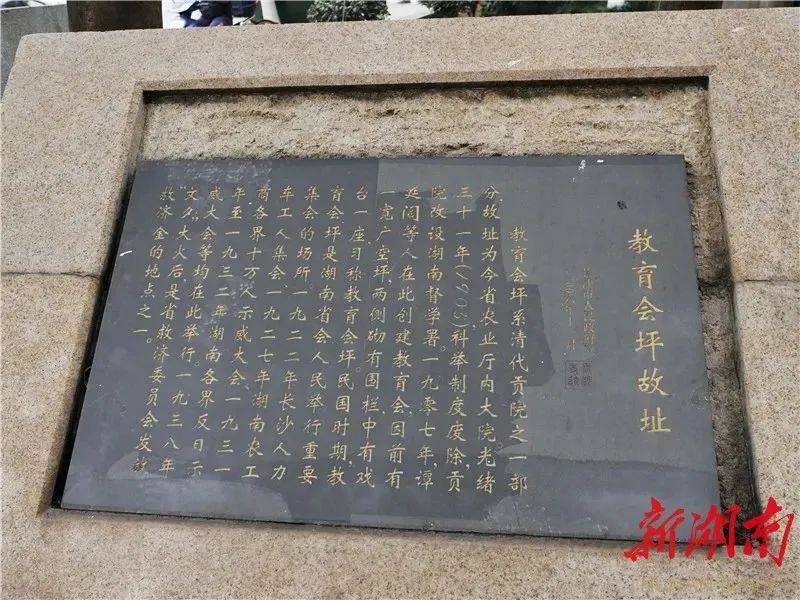 教育会坪故址
教育会坪系清代贡院之一部
分故址为今省农业厅内大院。光绪
三十一年(1905)科举制度废除,贡
院改设湖南督学署。一九零七年,谭
延闿等人在此创建教育会,因前有
一宽广空坪,两侧砌有围栏中有戏
台一座习称教育会坪。民国时期,教
育会坪是湖南省会人民举行重要
集会的场所一九二二年长沙人力
车工人集会、一九二七年湖南农工
商各界十万人示威大会、一九三一
年至一九三二年湖南各界反日示
威大会等均在此举行。一九三八年
“文夕”大火后,是省救济委员会发放
救济金的地点之一。
新湖南